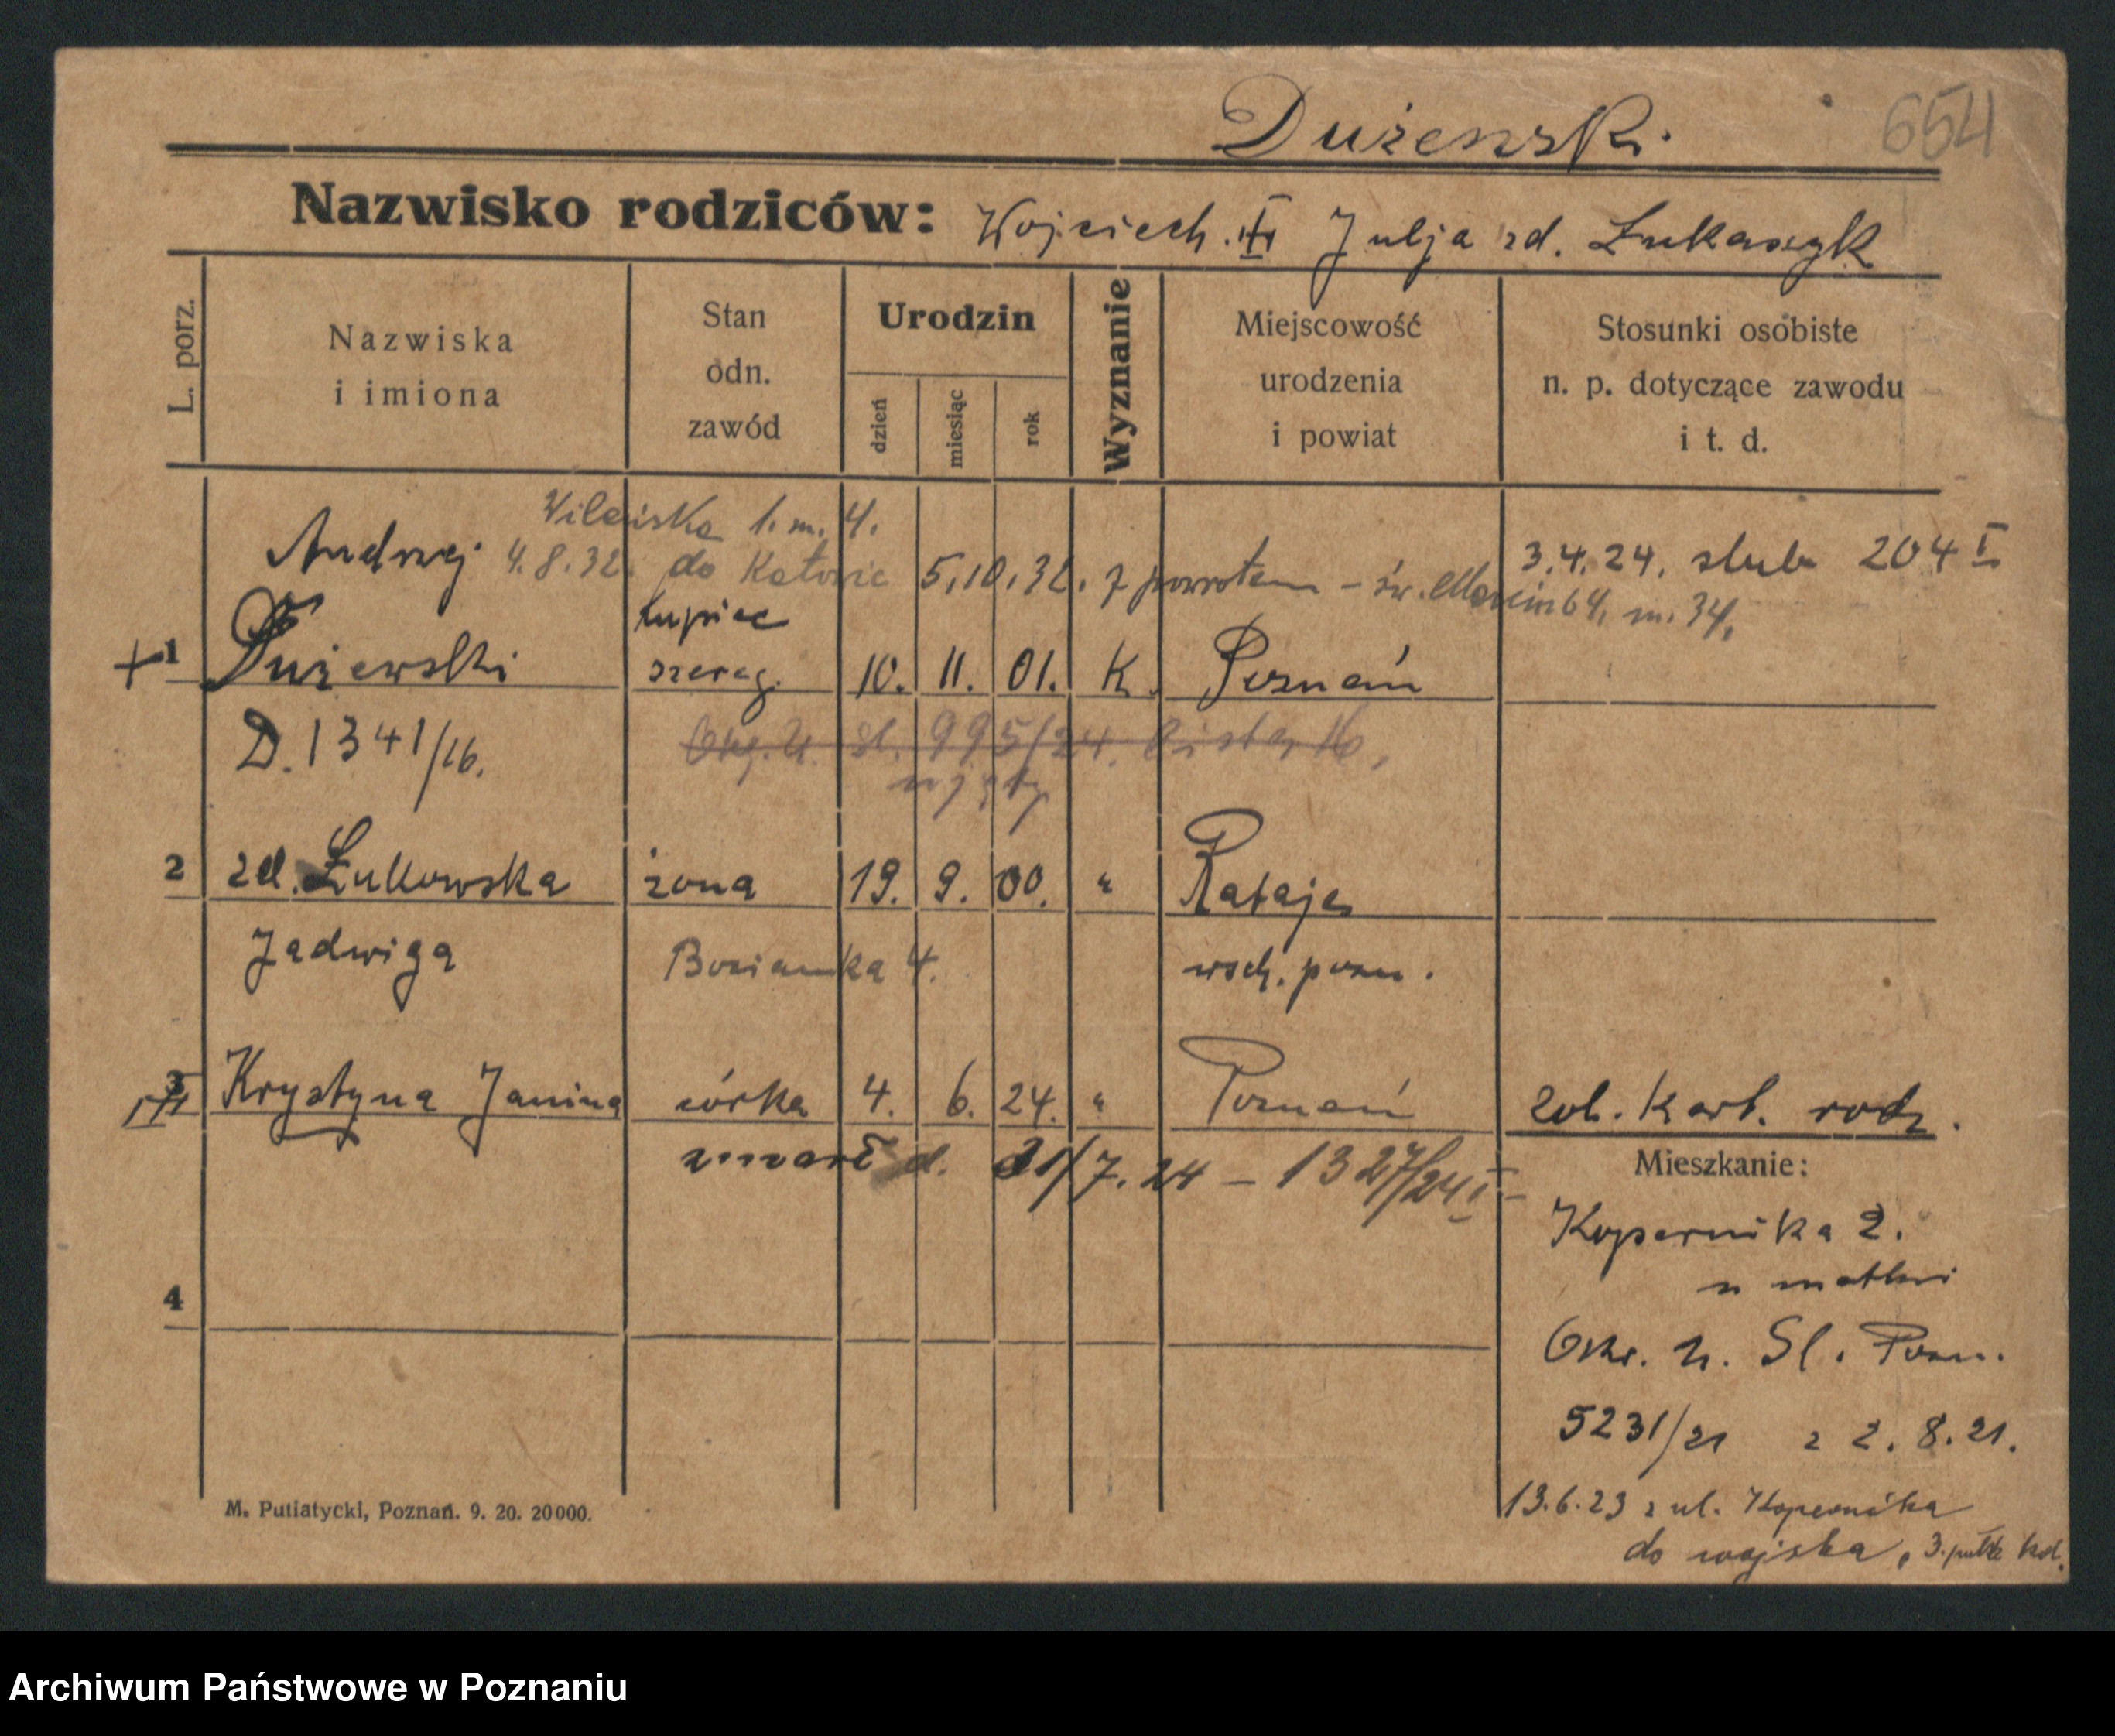 Dużewski.
654
Nazwisko rodziców: Wojciech. Julja zd. Łukaszyk
L. porz.
Nazwiska
i imiona
Stan
odn.
zawód
Urodzin
dzień
miesiąc
rok
Wyznanie
Miejscowość
urodzenia
i powiat
Stosunki osobiste
n. p. dotyczące zawodu
i t. d.
Wileńska 1. m. 4.
Andrzej 4.8.32. do Katowic 5.10.32. z powrotem - św. Marcin 64, m. 34,
3.4.24. ślub 204 I
kupiec
1 Dużewski szereg. 10. 11. 01. K. Poznań
D. 1341/16.
995/24.
2 zd. Łukowska żona 19. 9. 00. " Rataje
Jadwiga
4. wsch. pozn.
3 Krystyna Janina córka 4. 6. 24. " Poznań zob. Kart. rodz.
zmarł d. 31/7. 24 – 1327/24 I
Mieszkanie:
Kopernika 2.
u matki
4
Okr. U. St. Pozn.
5231/21 z 2. 8. 21.
13.6.23 z ul. Kopernika
do wojska, 3. pułk
M. Putiatycki, Poznań. 9. 20. 20000.
Archiwum Państwowe w Poznaniu